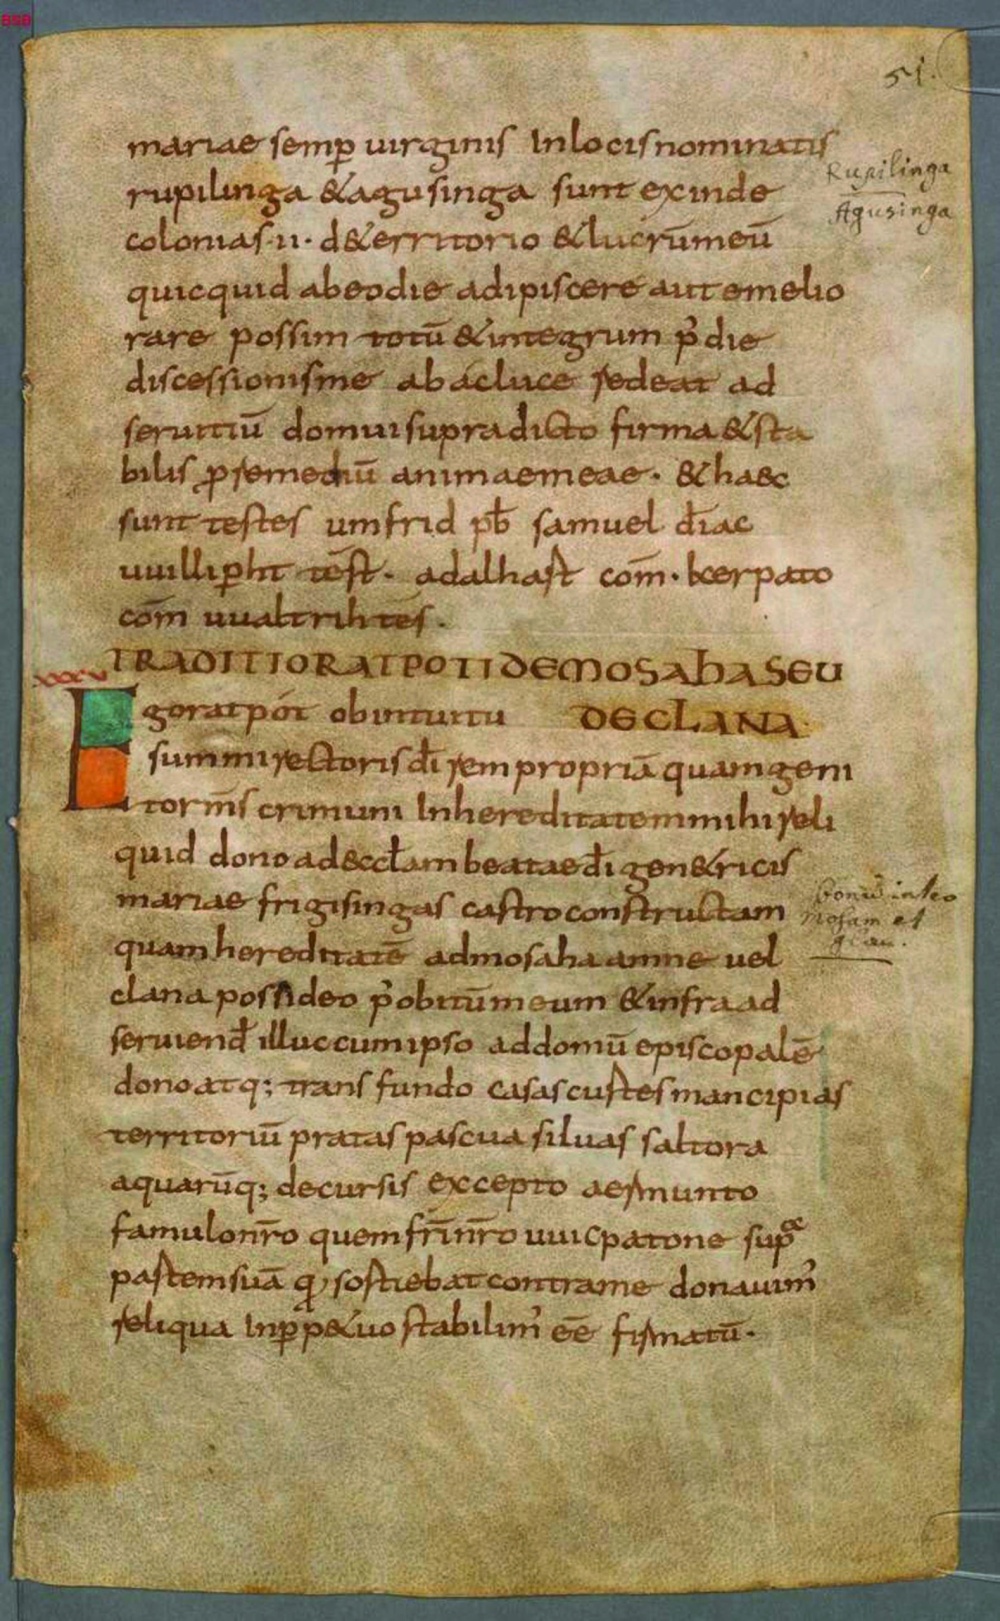 BSB
51.
mariae semp̱ uirginis In locis nominatis
Rupilinga
rupilinga & agusinga sunt exinde
Agusinga
colonias ·11· d&erritorio & lucrūmeū
quicquid abeodie adipiscere aut emelio
rare possim totū & integrum p̛ die
discessionisme ab acluce redeat ad
seruitiū domui supradicto firma & sta
bilis p̱ remediū animae meae · & haec
sunt testes umfrid pƀ samuel điac
uuillip̱ht tēst · adalhast com̄ · kerpato
com̄ uualtrih tes̄ ·
TRADITIO RATPOTI DE MOSAHA SEU
xxxv
DE CLANA
Ego ratpot ob intuitu
summi rectoris d̄i rem propriā quam geni
tor m̄s crimuni In hereditatem mihi reli
quid dono ad &cclam beatae d̄i gen&ricis
mariae frigisingas castro constructam
quam hereditatē ad mosaha amne uel
clana possideo p̛ obitūmeum & infra ad
seruienđ illuc cum ipso ad domū episcopalē
dono atq; trans fundo casas curtes mancipias
territoriū pratas pascua siluas saltora
aquarūq; decursis excepto aermunto
famulo nr̄o quem fr̄i nr̄o uuicpatone supͣ
partem suā q̛ sortiebat contra me donauim̛
reliqua In p̱p&uo stabilim̛ eē firmatū ·